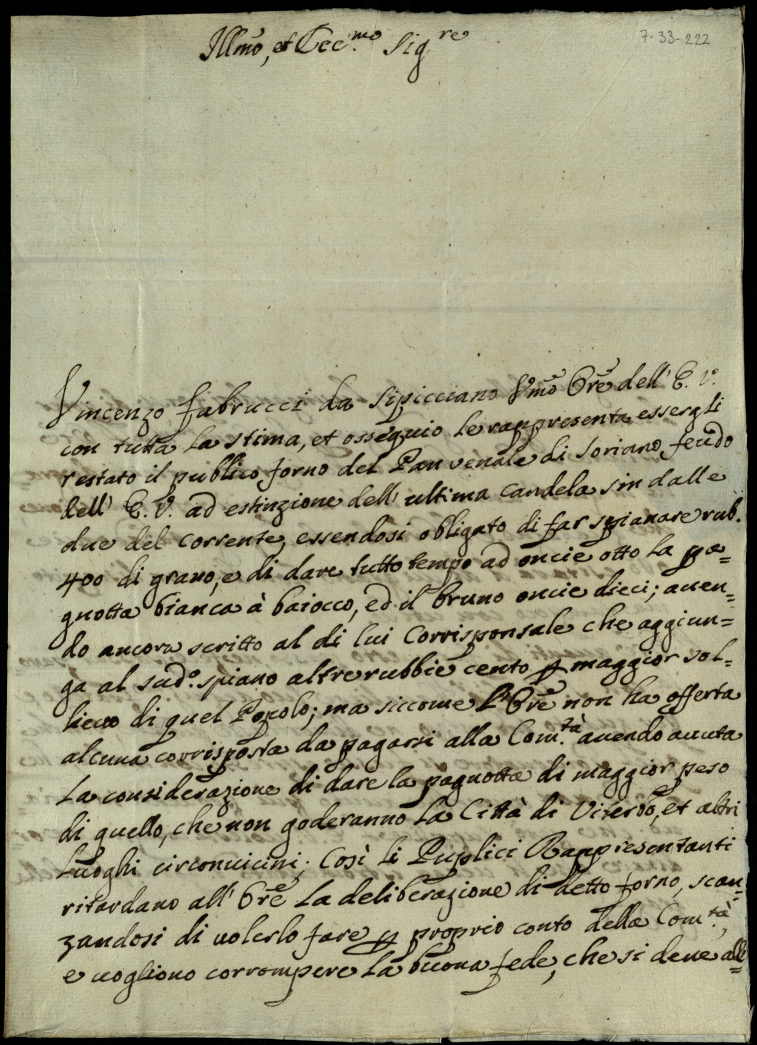 7-33-222
Illmo, et Ecc.mo Sig.re
Vincenzo Fabrucci da Sipicciano Vmo Ore dell' E. V.
con tutta la stima, et ossequio le rappresenta essergli
restato il publico forno del Pan venale di Soriano feudo
dell' E. V. ad estinzione dell' ultima candela sin dalle
due del corrente, essendosi obligato di far spianare rub.
400 di grano, e di dare tutto tempo ad oncie otto la pa=
gnotta bianca à baiocco, ed il bruno oncie dieci; auen=
do ancora scritto al di lui Corrisponsale che aggiun=
ga al sud.o spiano altre rubbie cento p maggior sol=
lieuo di quel Popolo; ma siccome l'Ore non ha offerta
alcuna corrisposta da pagarsi alla Com.tà auendo auuta
la considerazione di dare la pagnotta di maggior peso
di quello, che non goderanno la Città di Viterbo, et altri
luoghi circonuicini; Così li Puplici Rappresentanti
ritardano all' Ore la deliberazione di detto forno, scan=
zandosi di uolerlo fare p proprio conto della Com.tà,
e uogliono corrompere la buona fede, che si deue all=